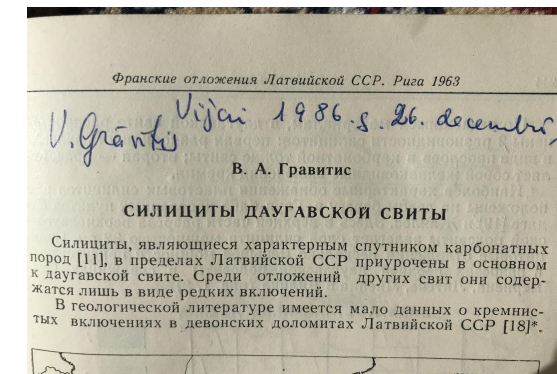 Франские отложения Латвийской ССР. Рига 1963
Vijai 1986. g. 26. decembrī,
V. Grāvītis
В. А. Гравитис
СИЛИЦИТЫ ДАУГАВСКОЙ СВИТЫ
Силициты, являющиеся характерным спутником карбонатных
пород [11], в пределах Латвийской ССР приурочены в основном
к даугавской свите. Среди отложений других свит они содер-
жатся лишь в виде редких включений.
В геологической литературе имеется мало данных о кремнис-
тых включениях в девонских доломитах Латвийской ССР [18]*.